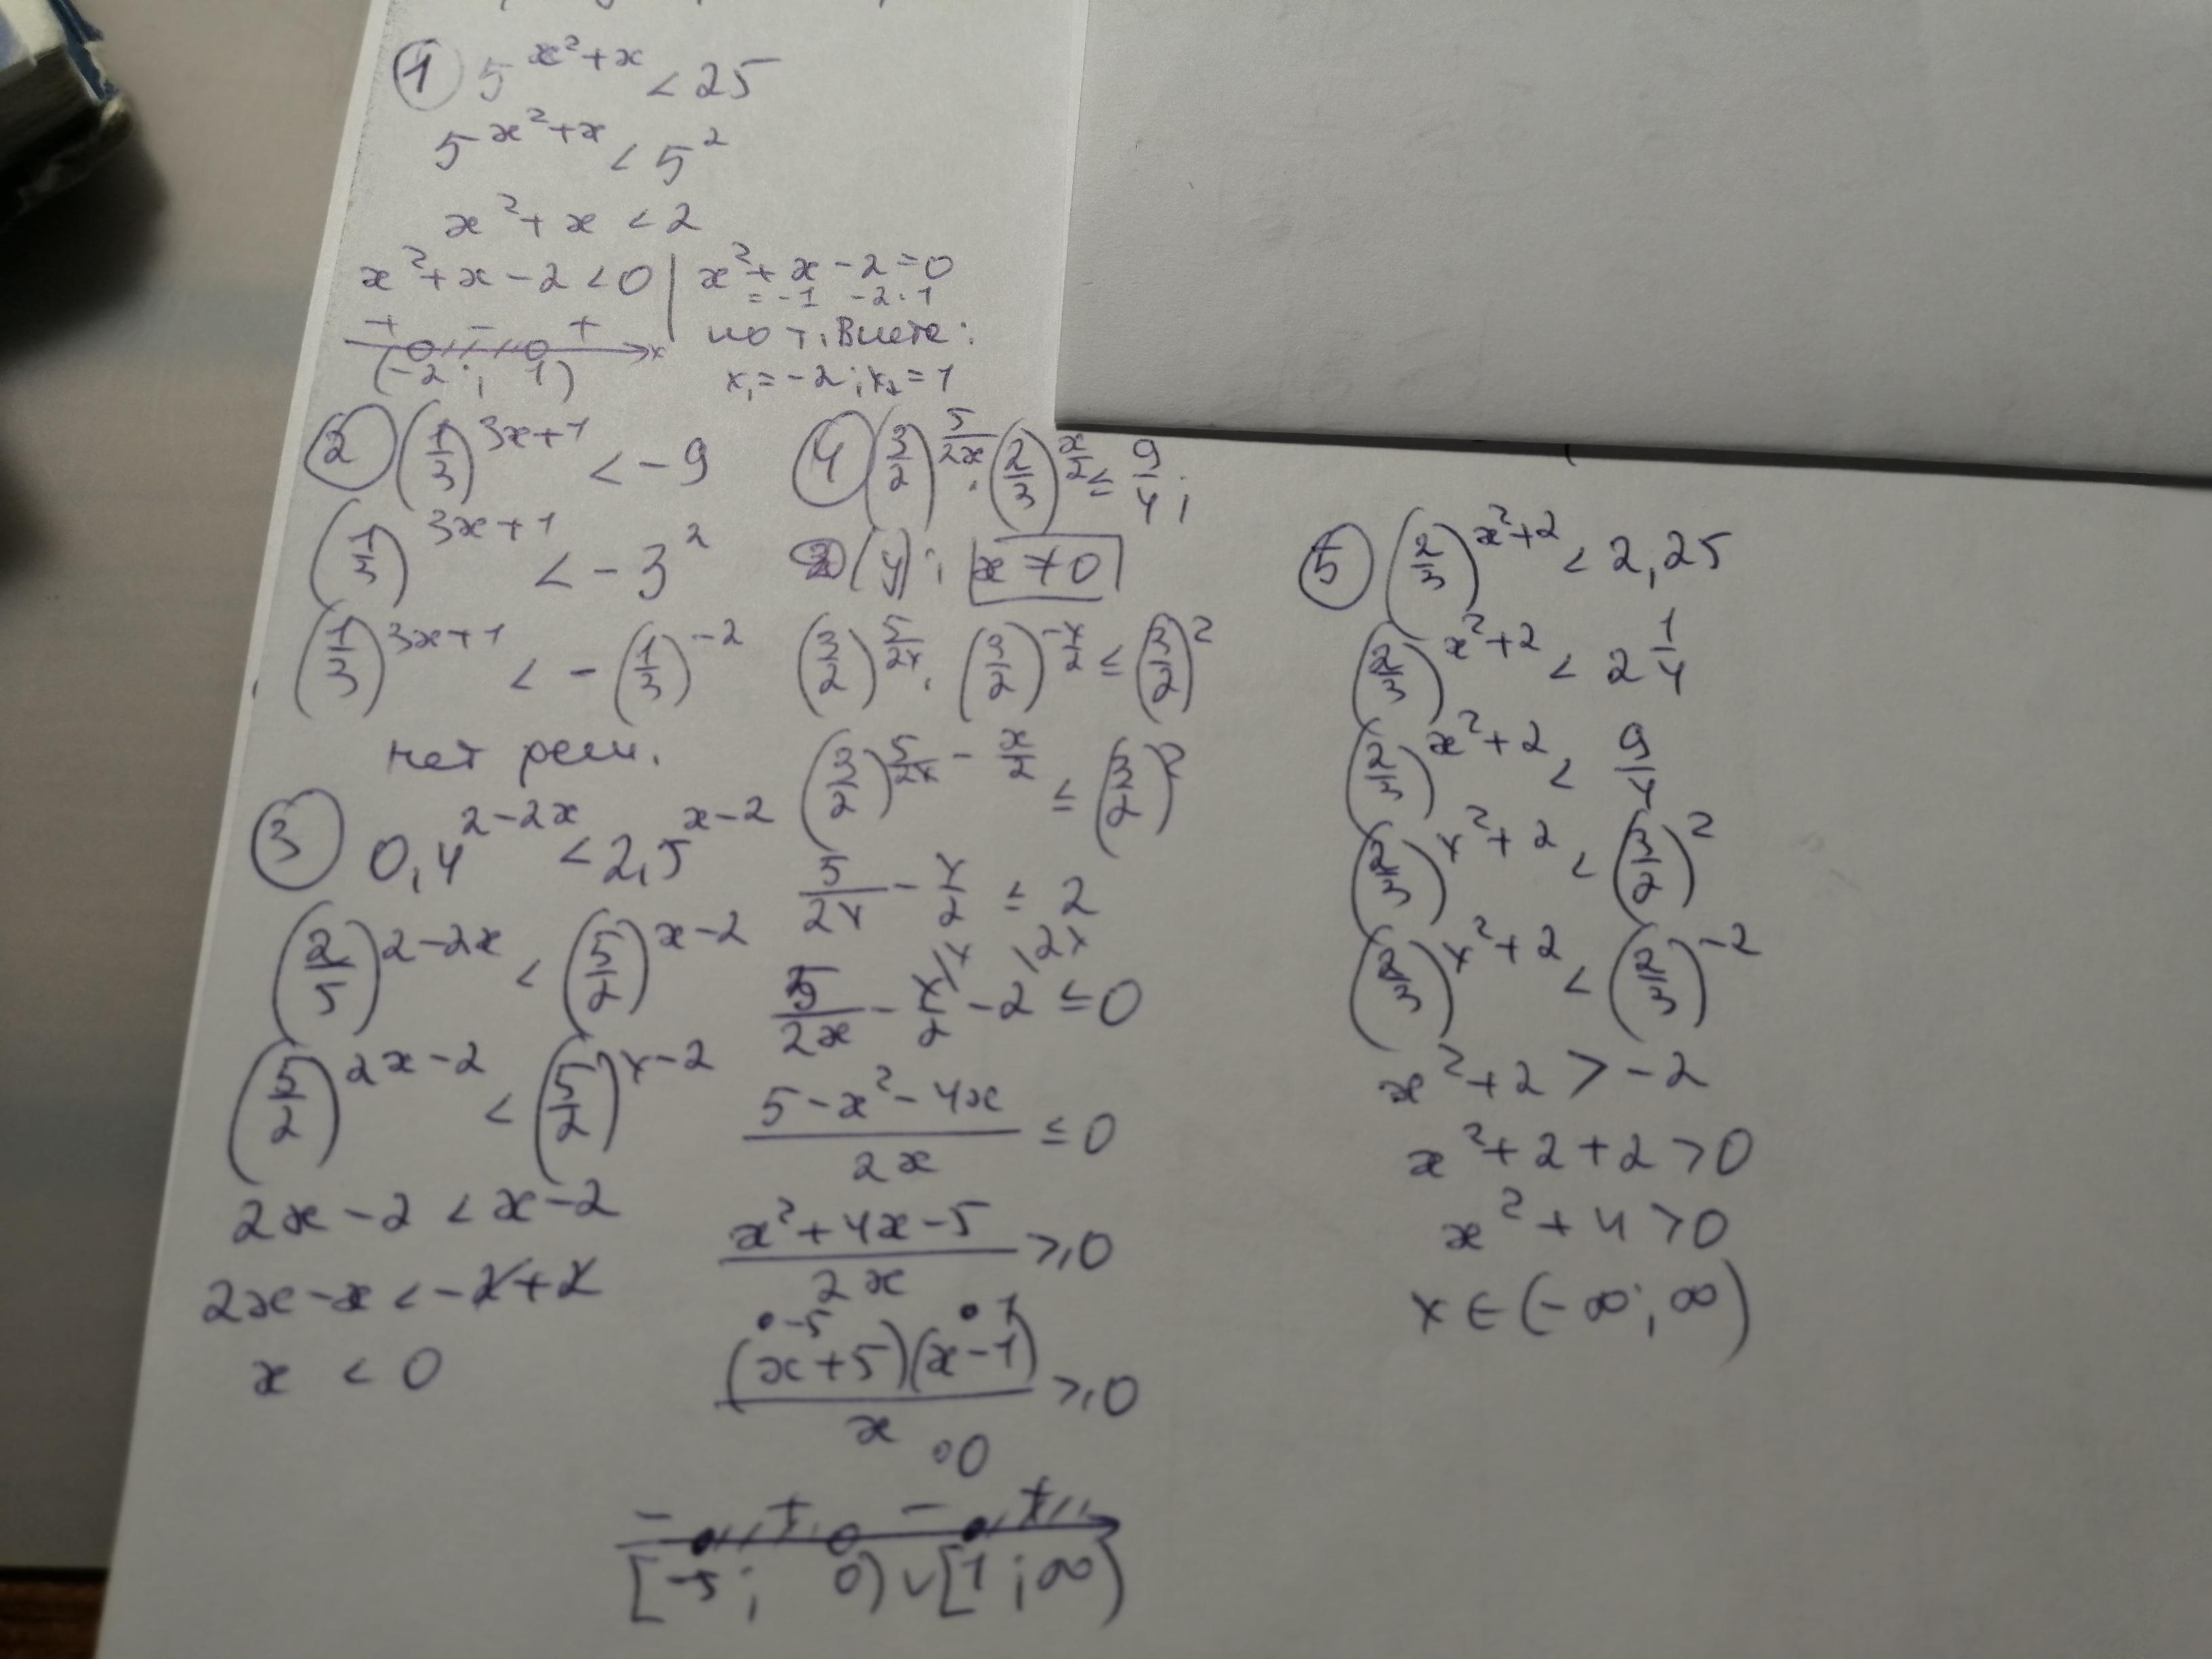 ① 5^(x²+x) < 25
5^(x²+x) < 5²
x² + x < 2
x² + x - 2 < 0 | x² + x - 2 = 0
= -1 -2·1
по т. Виета:
+ - + x
(-2 ; 1)
x₁ = -2; x₂ = 1
② (1/3)^(3x+1) < -9
(1/3)^(3x+1) < -3²
(1/3)^(3x+1) < -(1/3)^(-2)
нет реш.
③ 0,4^(2-2x) < 2,5^(x-2)
(2/5)^(2-2x) < (5/2)^(x-2)
(5/2)^(2x-2) < (5/2)^(x-2)
2x - 2 < x - 2
2x - x < -2 + 2
x < 0
④ (3/2)^(5/2x) · (2/3)^(x/2) ≤ 9/4;
(y): x ≠ 0
(3/2)^(5/2x) · (3/2)^(-x/2) ≤ (3/2)²
(3/2)^(5/2x - x/2) ≤ (3/2)²
5/2x - x/2 ≤ 2
5/2x - x/2 \x - 2 \2x ≤ 0
(5 - x² - 4x)/2x ≤ 0
(x² + 4x - 5)/2x ≥ 0
• -5 • 1
(x+5)(x-1)/x ≥ 0
∘0
- + - +
[-5; 0) ∪ [1; ∞)
⑤ (2/3)^(x²+2) < 2,25
(2/3)^(x²+2) < 2 1/4
(2/3)^(x²+2) < 9/4
(2/3)^(x²+2) < (3/2)²
(2/3)^(x²+2) < (2/3)^(-2)
x² + 2 > -2
x² + 2 + 2 > 0
x² + 4 > 0
x ∈ (-∞; ∞)